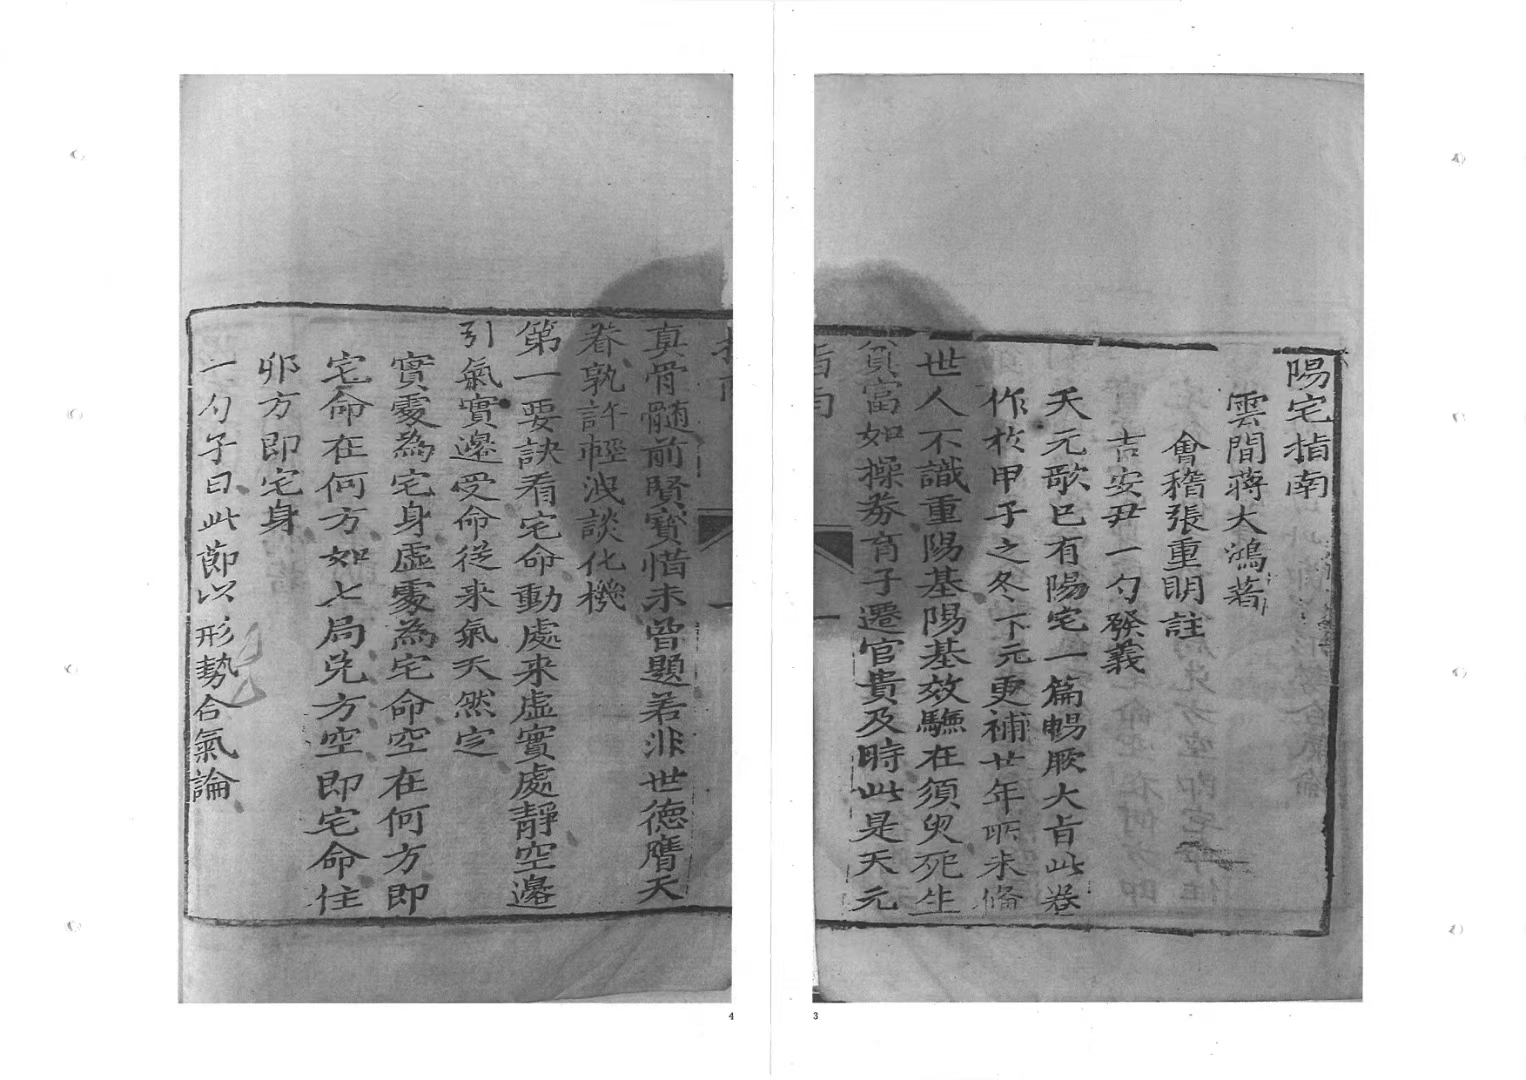 陽宅指南
雲間蔣大鴻著
會稽張重明註
吉安尹一勺發義
天元歌已有陽宅一篇暢厥大旨此卷
作於甲子之冬下元更補廿年所未偹
世人不識重陽基陽基效驗在須臾死生
貧富如操劵育子遷官貴及時此是天元
指南
一
3
真骨髓前賢寶惜未曾題若非世德膺天
眷孰許輕洩談化機
第一要訣看宅命動處來虛實處靜空邊
引氣實邊受命從来氣天然定
實處為宅身虛處為宅命空在何方即
宅命在何方如七局兌方空即宅命住
卯方即宅身
一勺子曰此節以形勢合氣論
4